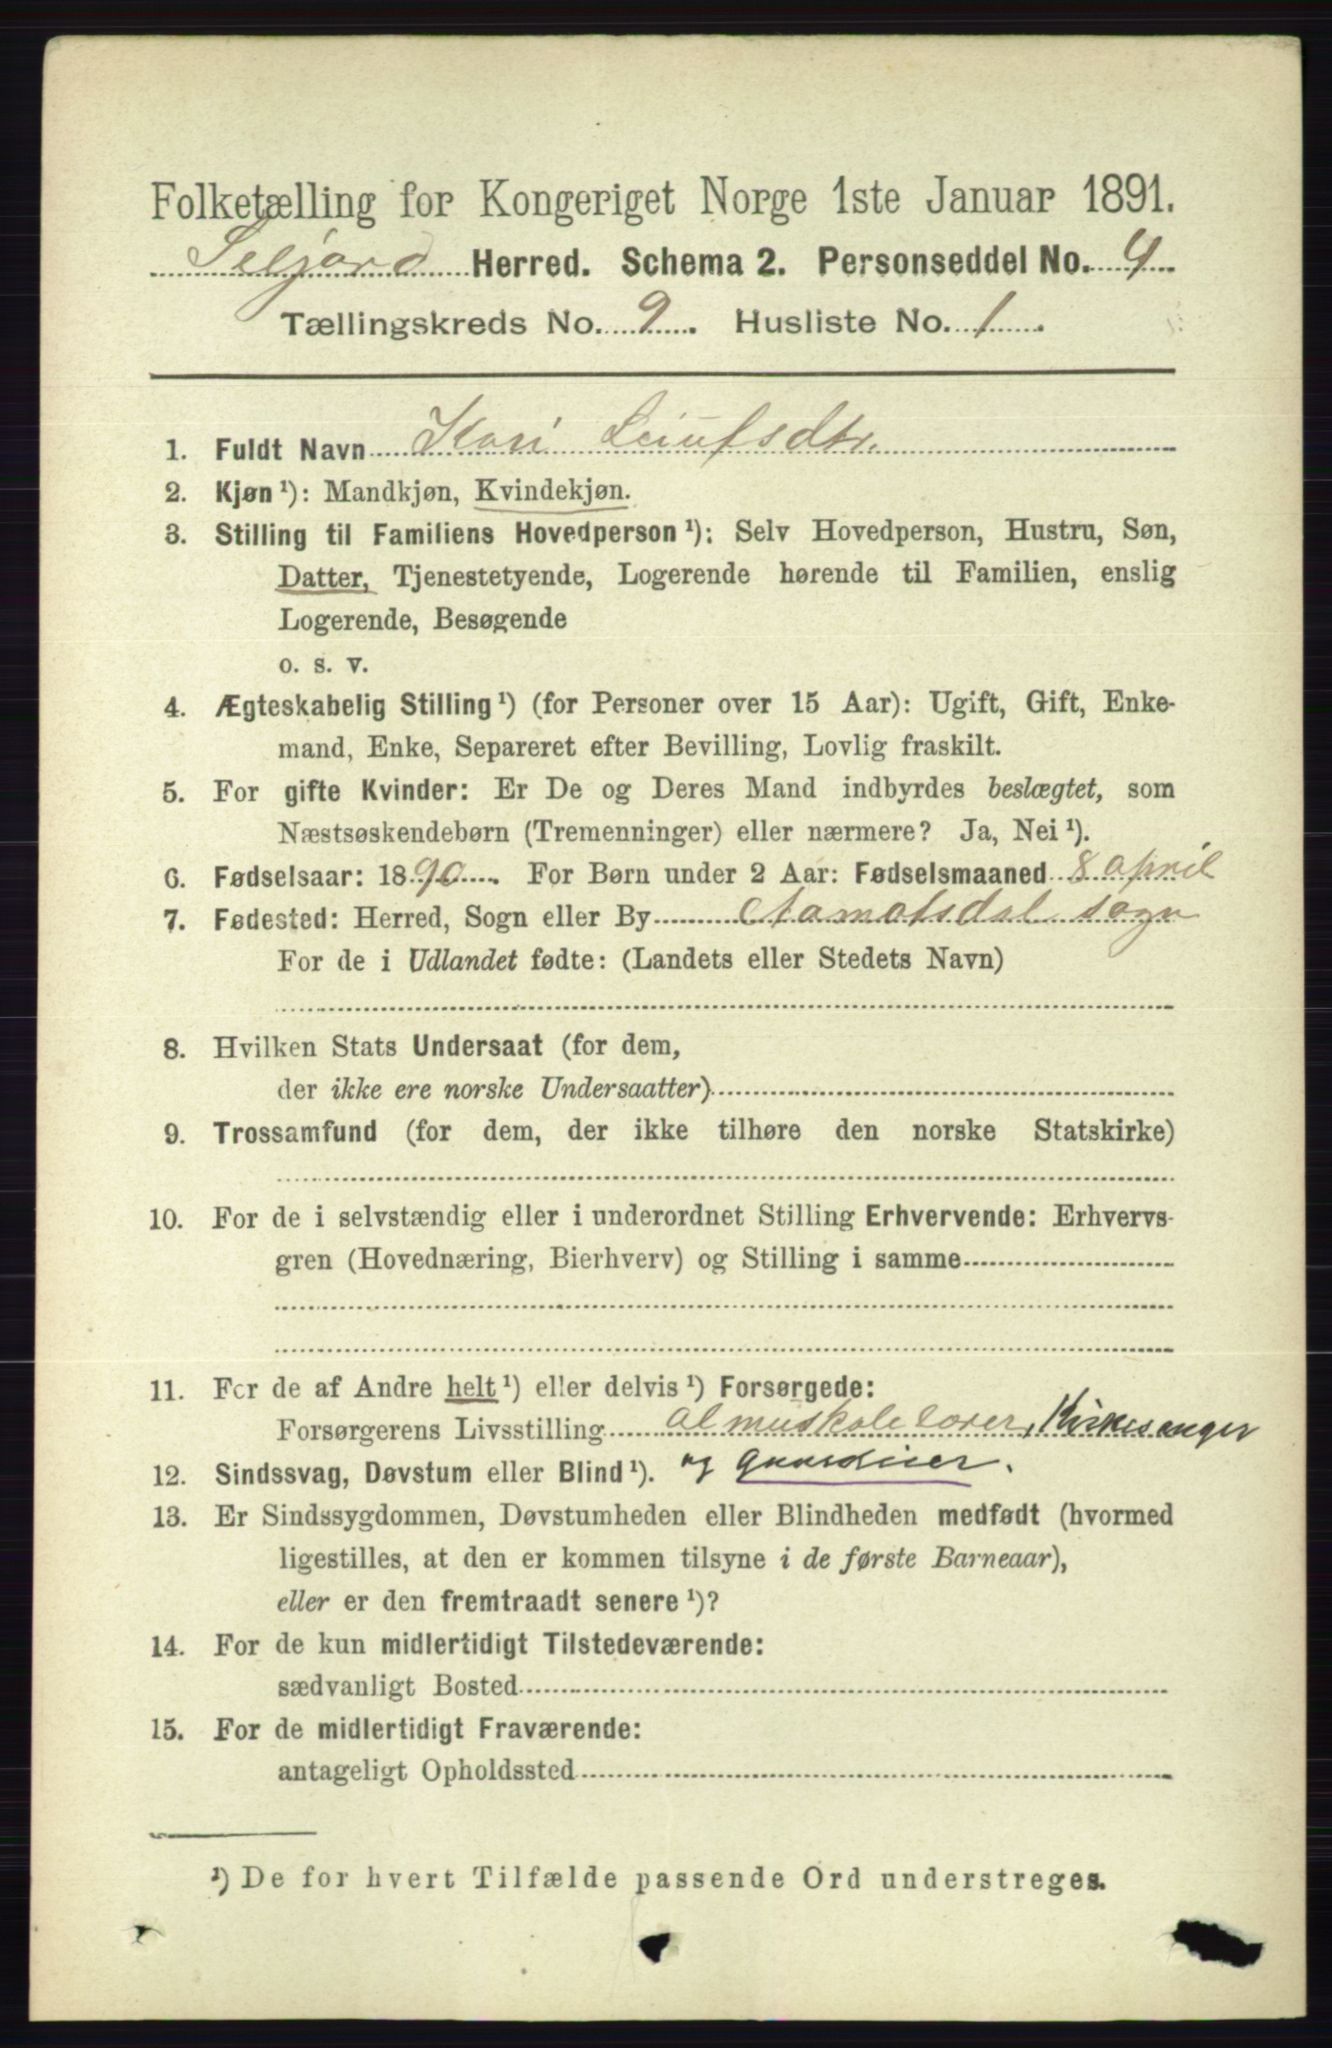 Folketælling for Kongeriget Norge 1ste Januar 1891.
Seljord Herred. Schema 2. Personseddel No. 4
Tællingskreds No. 9. Husliste No. 1.
1. Fuldt Navn Kari Leiufsdtr.
2. Kjøn¹): Mandkjøn, Kvindekjøn.
3. Stilling til Familiens Hovedperson¹): Selv Hovedperson, Hustru, Søn,
Datter, Tjenestetyende, Logerende hørende til Familien, enslig
Logerende, Besøgende
o. s. v.
4. Ægteskabelig Stilling¹) (for Personer over 15 Aar): Ugift, Gift, Enke-
mand, Enke, Separeret efter Bevilling, Lovlig fraskilt.
5. For gifte Kvinder: Er De og Deres Mand indbyrdes beslægtet, som
Næstsøskendebørn (Tremenninger) eller nærmere? Ja, Nei¹).
6. Fødselsaar: 1890. For Børn under 2 Aar: Fødselsmaaned 8 april
7. Fødested: Herred, Sogn eller By Aamotsdal sogn
For de i Udlandet fødte: (Landets eller Stedets Navn)
8. Hvilken Stats Undersaat (for dem,
der ikke ere norske Undersaatter)
9. Trossamfund (for dem, der ikke tilhøre den norske Statskirke)
10. For de i selvstændig eller i underordnet Stilling Erhvervende: Erhvervs-
gren (Hovednæring, Bierhverv) og Stilling i samme
11. For de af Andre helt¹) eller delvis¹) Forsørgede:
Forsørgerens Livsstilling almuskolelærer, Kirkesanger
12. Sindssvag, Døvstum eller Blind¹). og Gaardbruger.
13. Er Sindssygdommen, Døvstumheden eller Blindheden medfødt (hvormed
ligestilles, at den er kommen tilsyne i de første Barneaar),
eller er den fremtraadt senere¹)?
14. For de kun midlertidigt Tilstedeværende:
sædvanligt Bosted
15. For de midlertidigt Fraværende:
antageligt Opholdssted
¹) De for hvert Tilfælde passende Ord understreges.